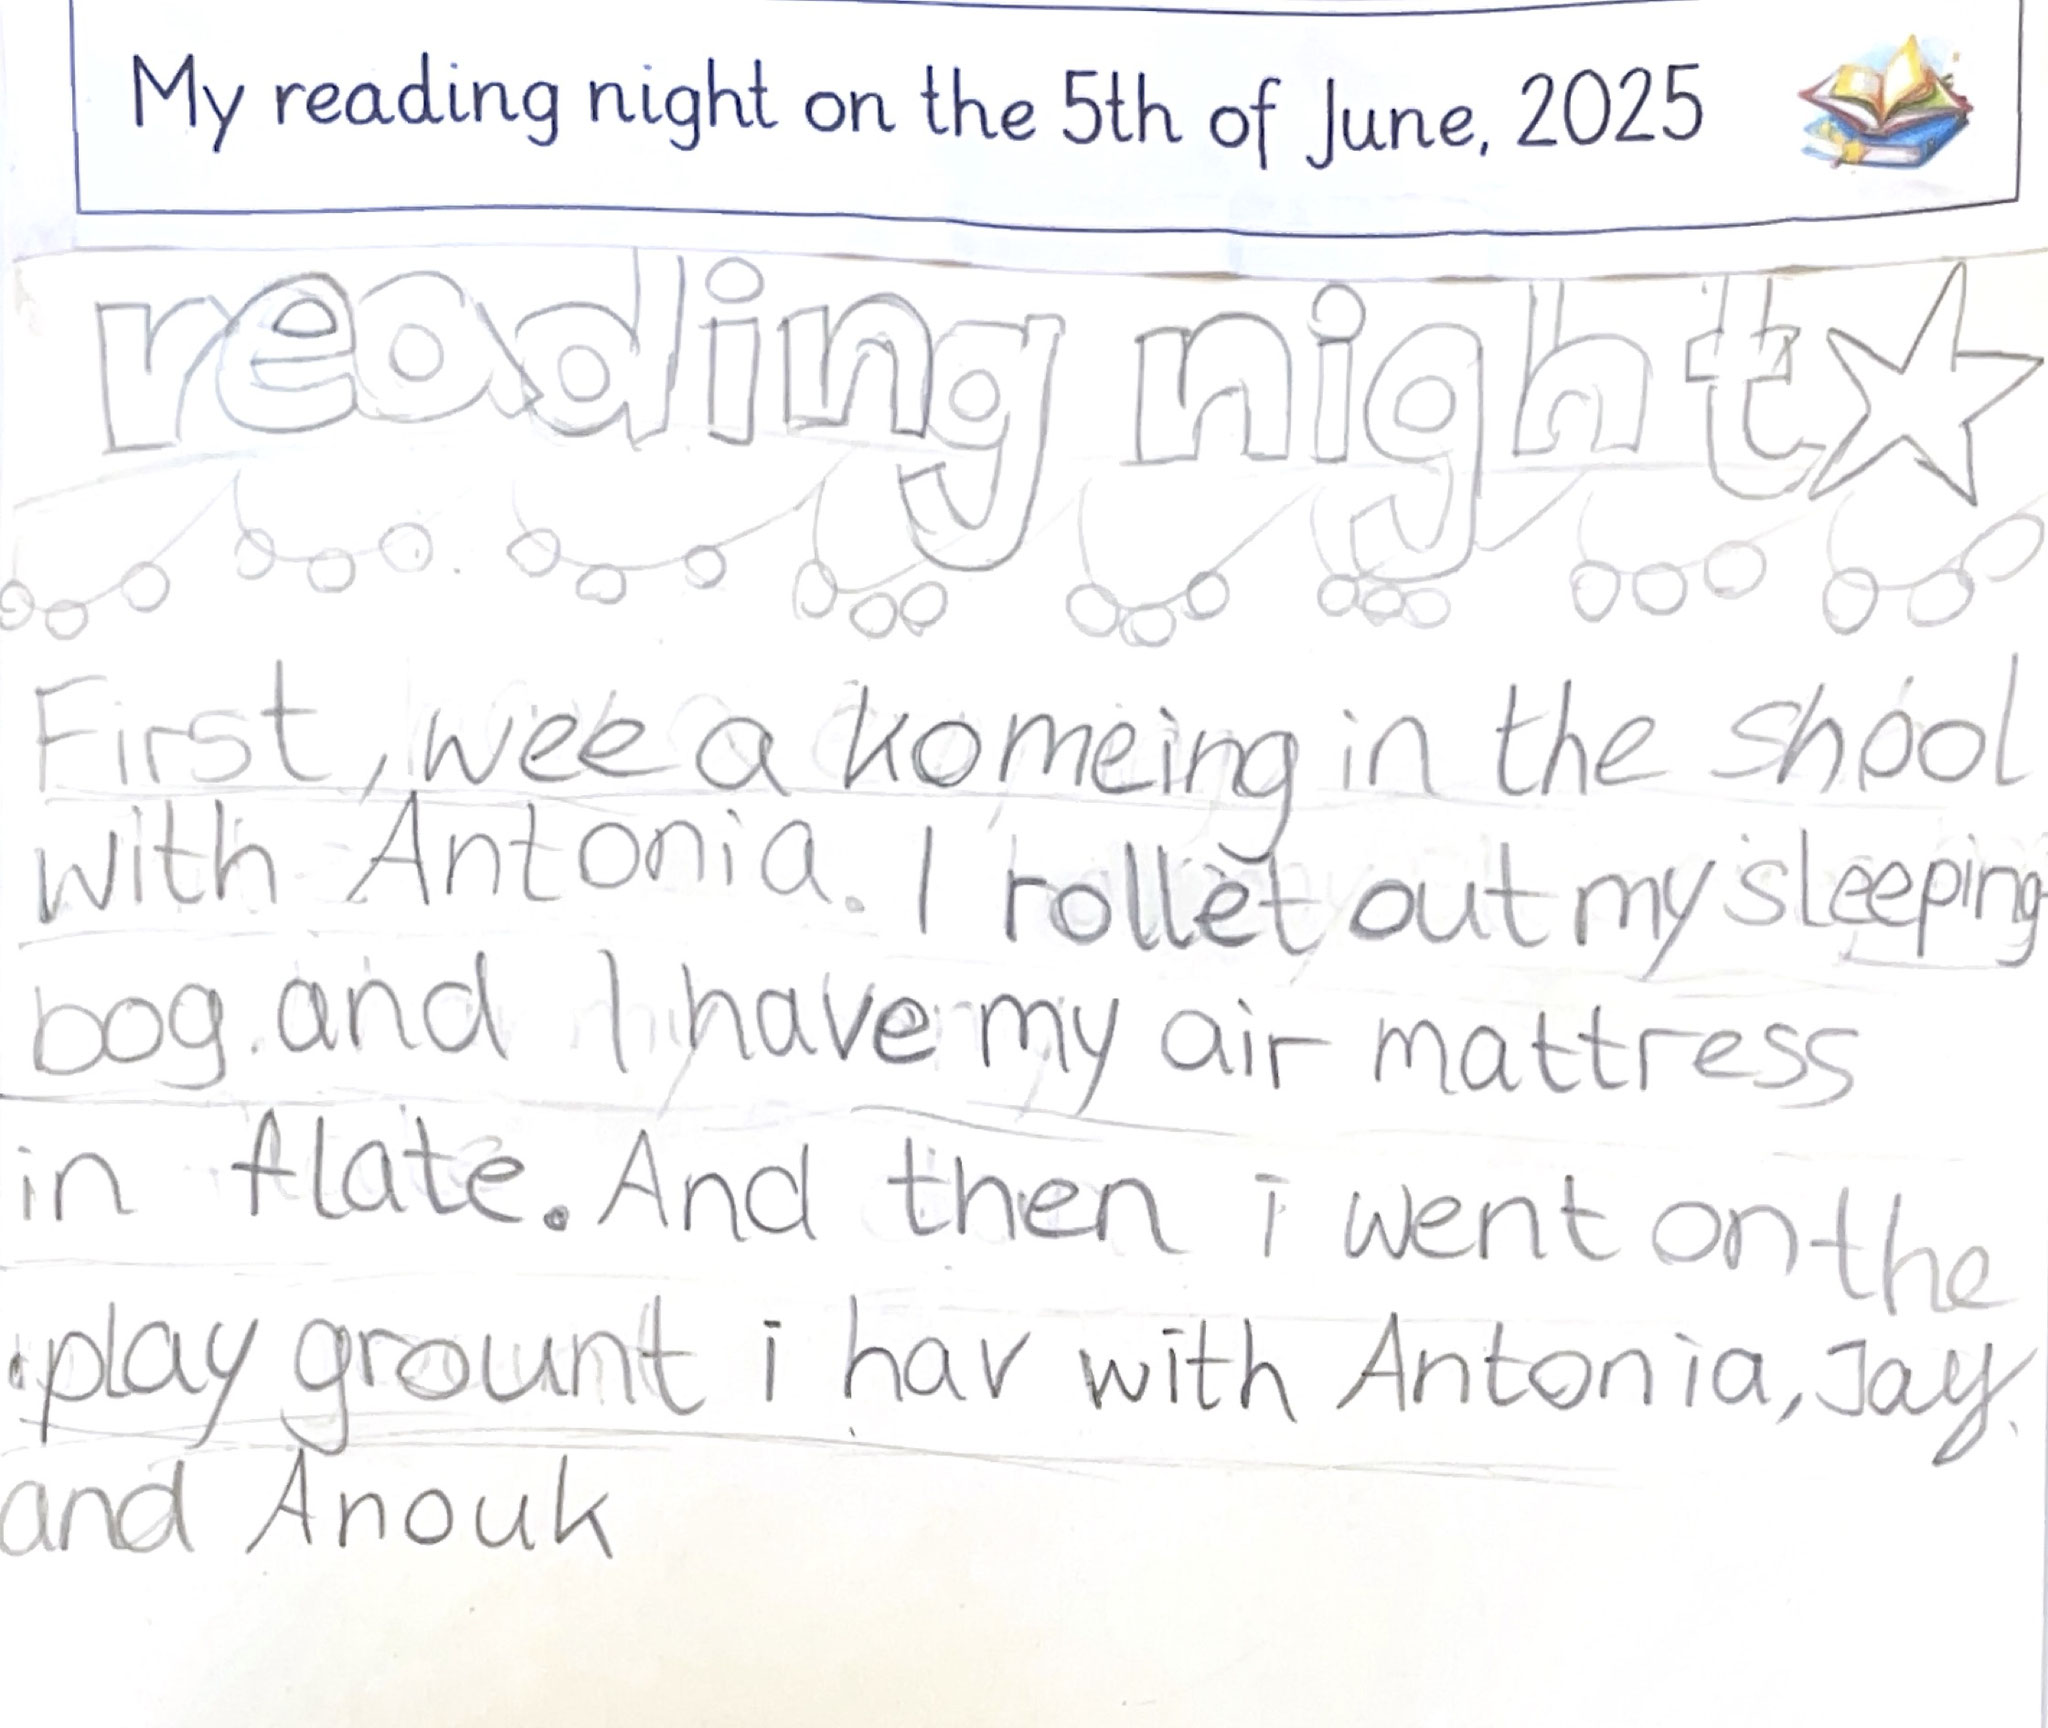 My reading night on the 5th of June, 2025
reading night
First, wee a komeing in the shool
with Antonia. I rollet out my sleeping
bog and I have my air mattress
in flate. And then i went on the
play grount i hav with Antonia, Jay
and Anouk